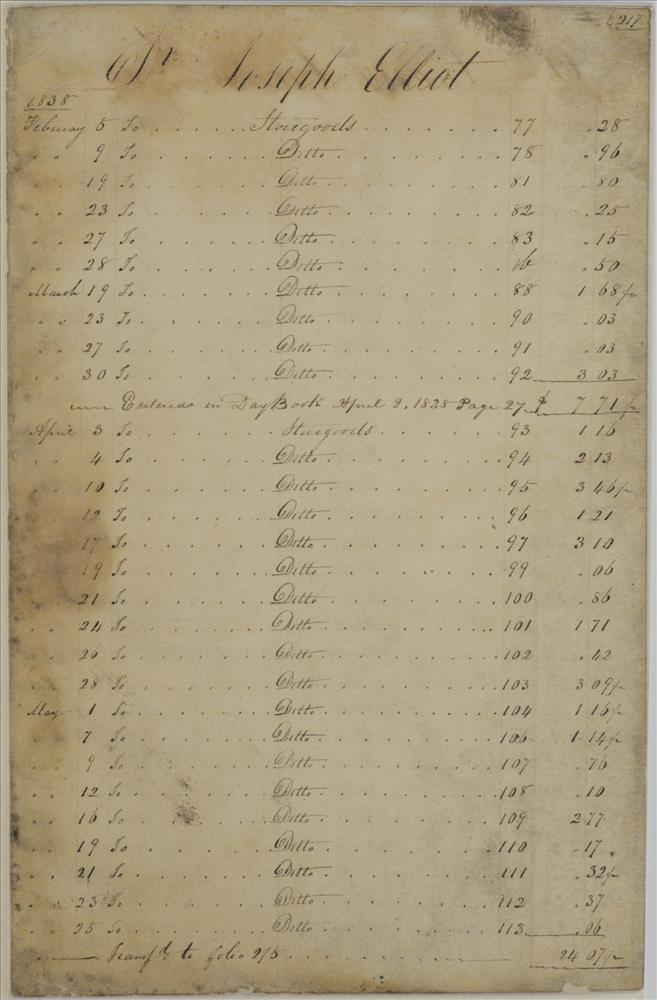 217
Dr. Joseph Elliot
1838
February 5 To . . . . . Storegoods . . . . . . . 77 .28
" " 9 To . . . . . . Ditto . . . . . . . . 78 .96
" " 19 To . . . . . . Ditto . . . . . . . . 81 .80
" " 23 To . . . . . . Ditto . . . . . . . . 82 .25
" " 27 To . . . . . . Ditto . . . . . . . . 83 .15
" " 28 To . . . . . . Ditto . . . . . . . . ib .50
March 19 To . . . . . . Ditto . . . . . . . . 88 1 68½
" " 23 To . . . . . . Ditto . . . . . . . . 90 .03
" " 27 To . . . . . . Ditto . . . . . . . . 91 .03
" " 30 To . . . . . . Ditto . . . . . . . . 92 3 03
Entered in Day Book April 2, 1838 Page 27 $ 7 71½
April 3 To . . . . . . Storegoods . . . . . . 93 1 16
" " 4 To . . . . . . Ditto . . . . . . . . 94 2 13
" " 10 To . . . . . . Ditto . . . . . . . . 95 3 46½
" " 12 To . . . . . . Ditto . . . . . . . . 96 1 21
" " 17 To . . . . . . Ditto . . . . . . . . 97 3 10
" " 19 To . . . . . . Ditto . . . . . . . . 99 .06
" " 21 To . . . . . . Ditto . . . . . . . . 100 .86
" " 24 To . . . . . . Ditto . . . . . . . . 101 1 71
" " 26 To . . . . . . Ditto . . . . . . . . 102 .42
" " 28 To . . . . . . Ditto . . . . . . . . 103 3 09½
May 1 To . . . . . . Ditto . . . . . . . . 104 1 16½
" " 7 To . . . . . . Ditto . . . . . . . . 106 1 14½
" " 9 To . . . . . . Ditto . . . . . . . . 107 .76
" " 12 To . . . . . . Ditto . . . . . . . . 108 .10
" " 16 To . . . . . . Ditto . . . . . . . . 109 2 77
" " 19 To . . . . . . Ditto . . . . . . . . 110 .17
" " 21 To . . . . . . Ditto . . . . . . . . 111 .32½
" " 23 To . . . . . . Ditto . . . . . . . . 112 .37
" " 25 To . . . . . . Ditto . . . . . . . . 113 .06
Transfd. to folio 215 . . . . . . . . . . 24 07½